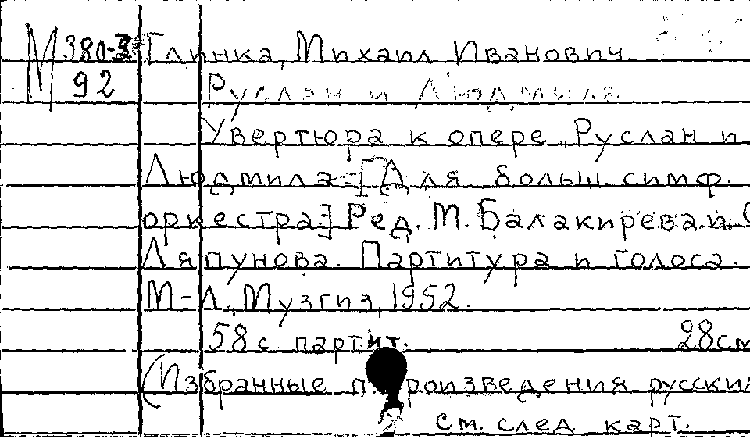 М 380-3 Глинка, Михаил Иванович
92 Руслан и Людмила
Увертюра к опере „Руслан и
Людмила“ [Для больш. симф.
оркестра] Ред. М. Балакирева и С
Ляпунова. Партитура и голоса.
М-Л, Музгиз, 1952.
58 с партит. 28 см
(Избранные произведения русских
см. след карт.